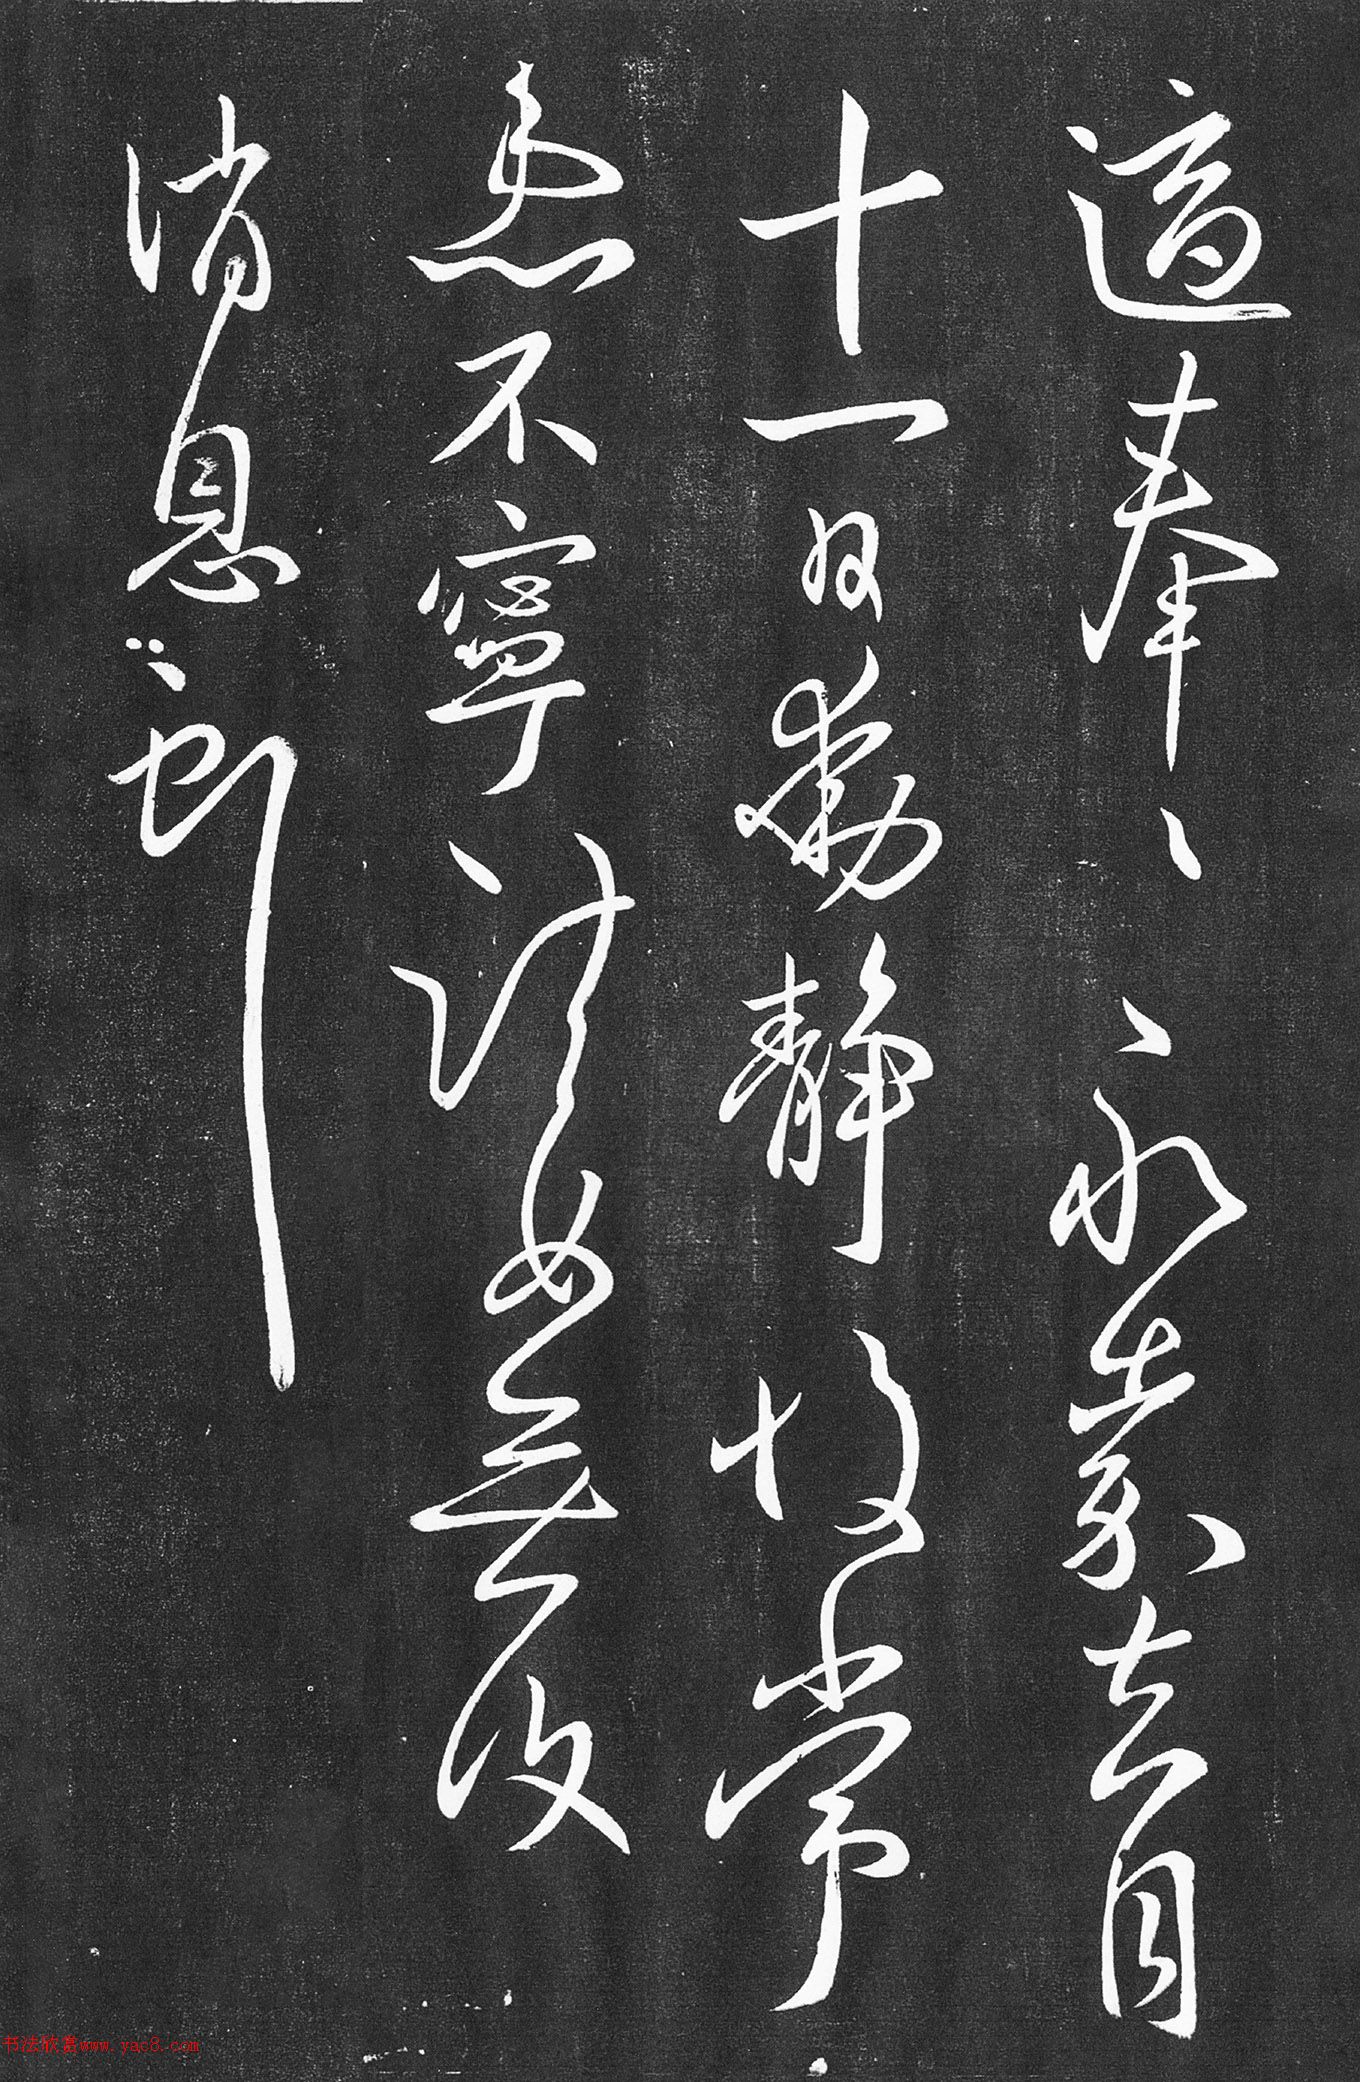 適奉〻永嘉去月
十一日動靜故常
患不寧諸女無復
消息
书法欣赏www.yac8.com